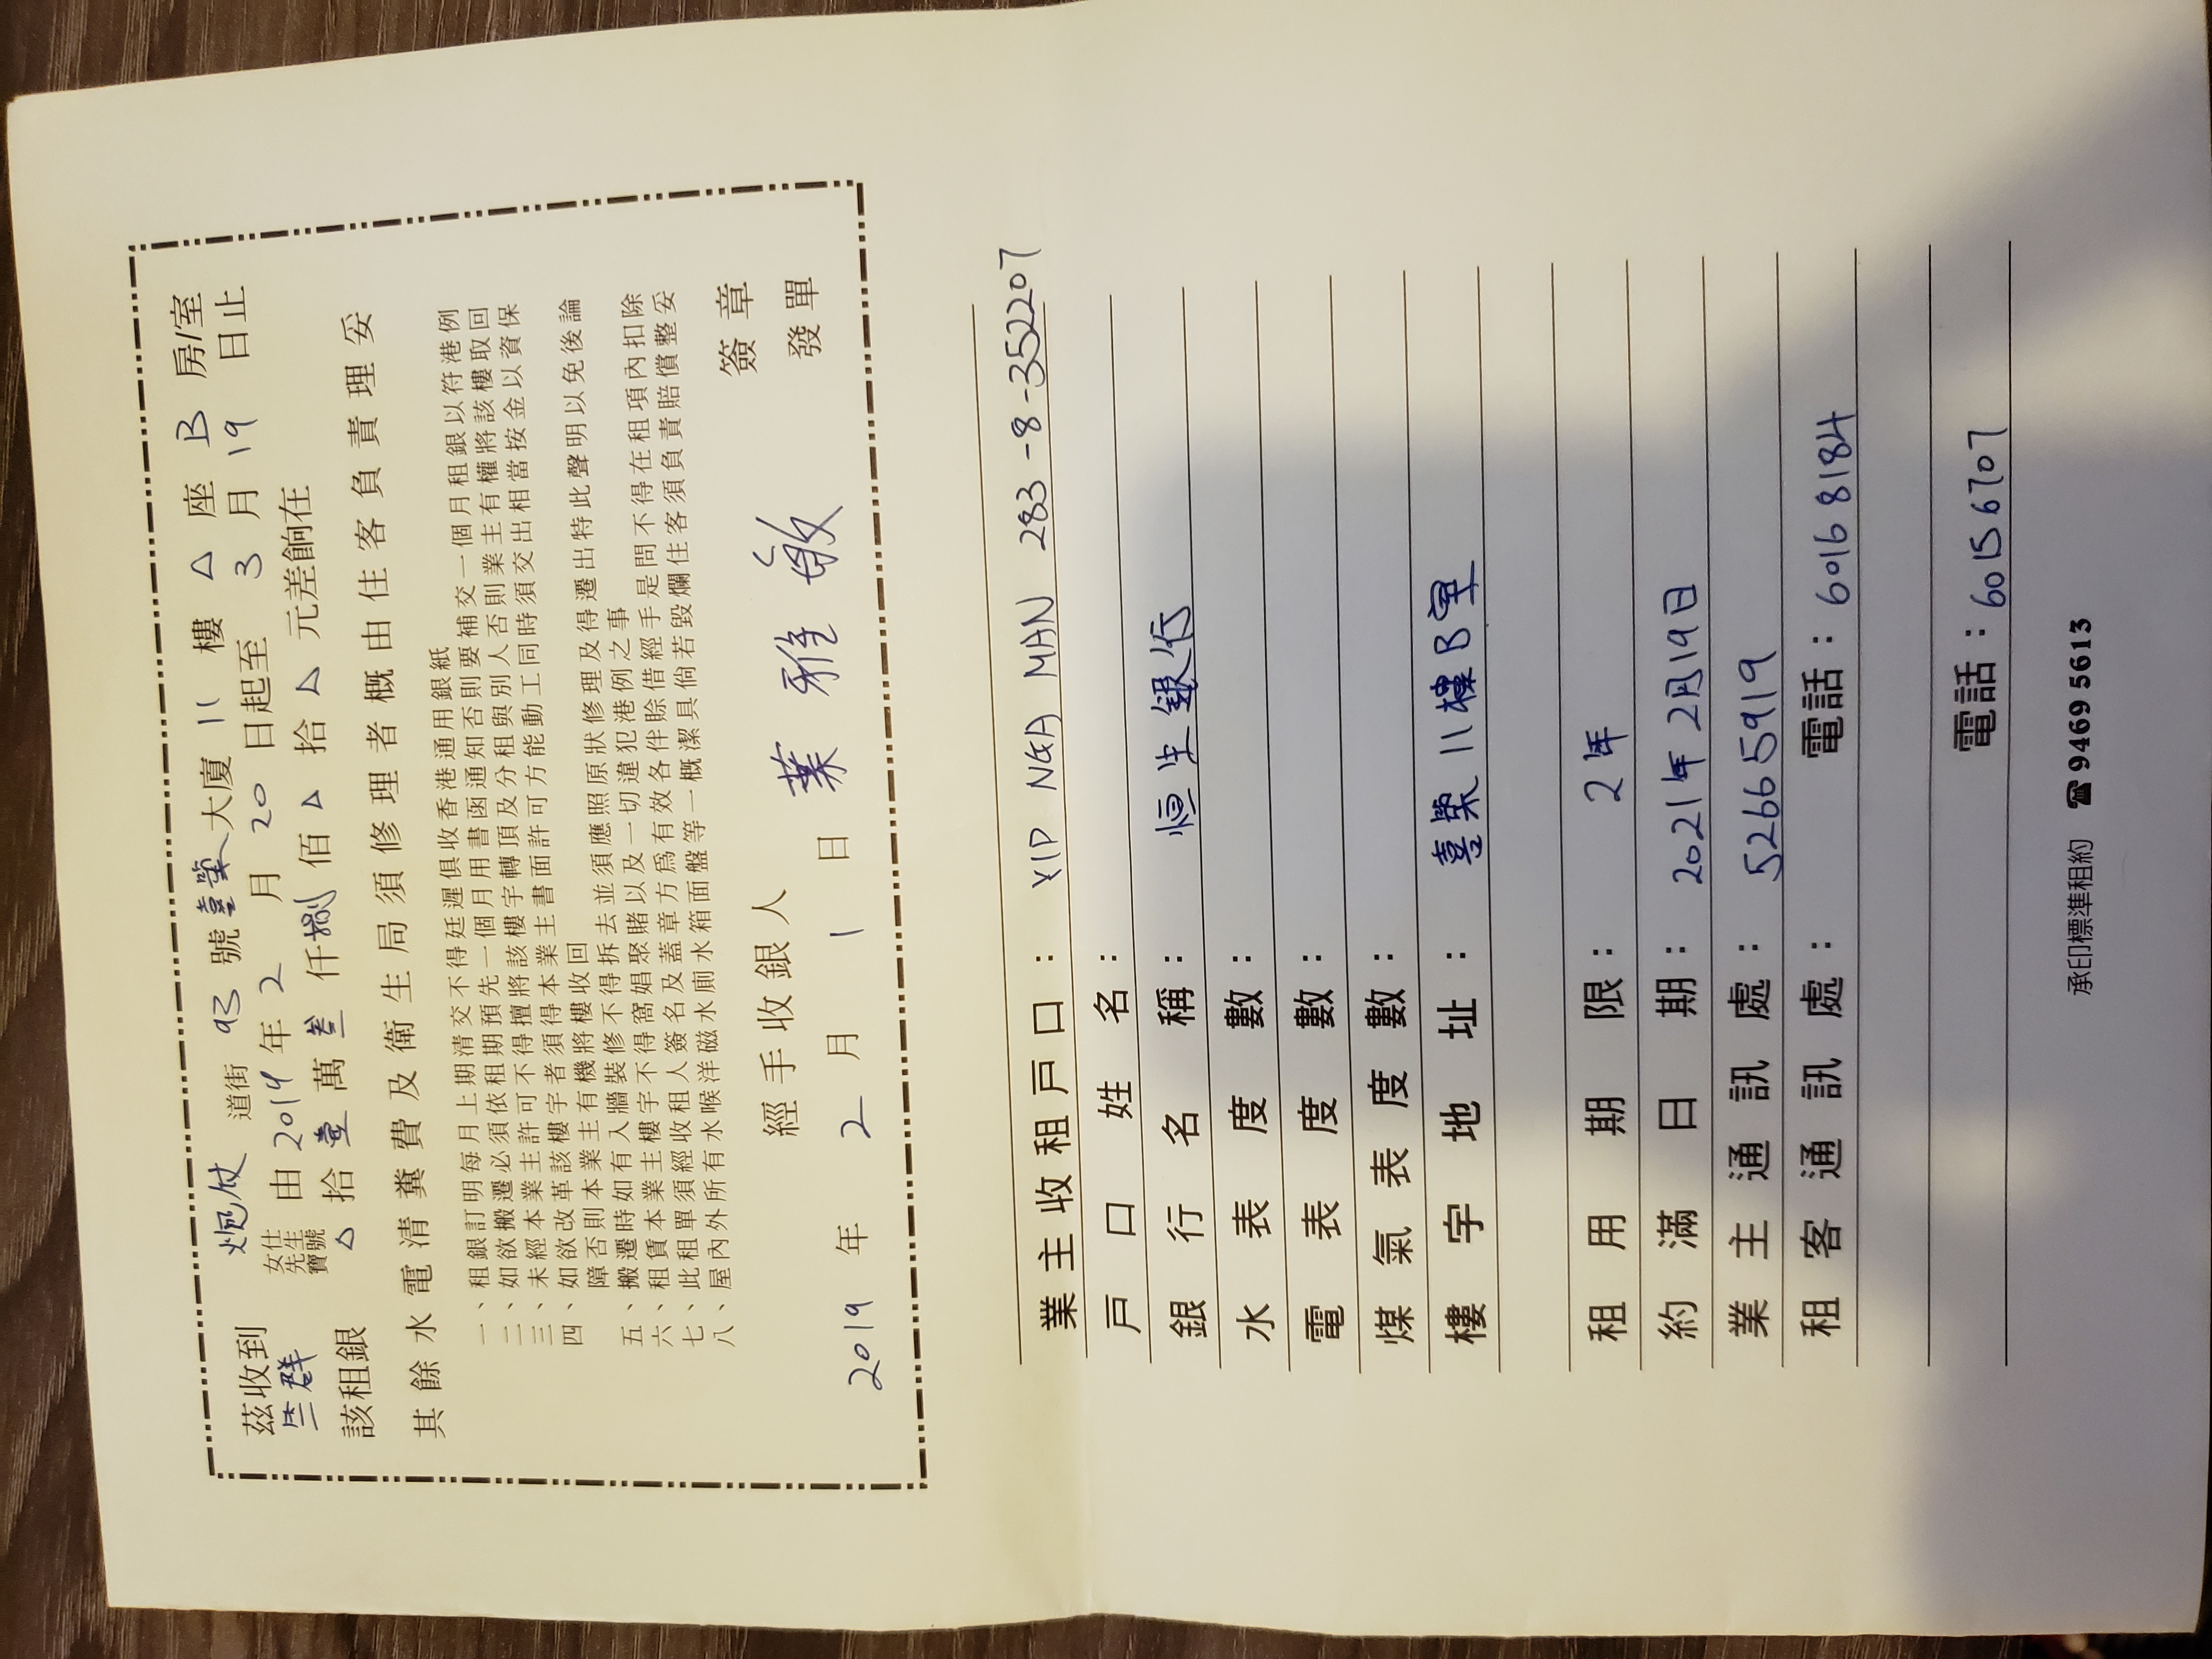 茲收到 炮仗 道街 93 號 喜榮 大廈 11 樓 △ 座 B 房/室
群 女仕 先生 寶號 由 2019 年 2 月 20 日起至 3 月 19 日止
該租銀 △ 拾 壹 萬 叁 仟 捌 佰 △ 拾 △ 元差餉在
其餘水電清糞費及衛生局須修理者概由住客負責理妥
一、租銀訂明每月上期清交不得廷遲俱收香港通用銀紙
二、如欲搬遷必須依租期預先一個月用書函通知否則要補交一個月租銀以符港例
三、未經本業主許可不得擅將該樓宇轉頂及分租與別人否則業主有權將該樓取回
四、如欲改革該樓宇者須得本業主書面許可方能動工同時須交出相當按金以資保
障否則本業主有機將樓收回
五、搬遷時如有入牆裝修不得拆去並須應照原狀修理及得遷出特此聲明以免後論
六、租賃本業主樓宇不得窩娼聚賭以及一切違犯港例之事
七、此租單須經收租人簽名及蓋章方為有效各伴賒借經手是問不得在租項內扣除
八、屋內外所有水喉洋磁水廁水箱面盤等一概潔具倘若毀爛住客須負責賠償整妥
經手收銀人 葉雅敏 簽章
2019 年 2 月 1 日 發單
業主收租戶口： YIP NGA MAN 283-8-352207
戶口姓名：
銀行名稱： 恒生銀行
水表度數：
電表度數：
煤氣表度數：
樓宇地址： 喜榮11樓B室
租用期限： 2年
約滿日期： 2021年2月19日
業主通訊處： 52665919
租客通訊處： 電話：60168184
電話：60156707
承印標準租約 ☎ 9469 5613